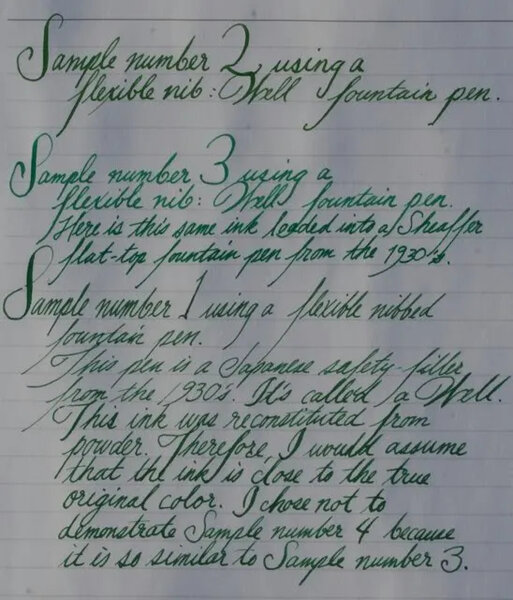 Sample number 2 using a
flexible nib: Well fountain pen.
Sample number 3 using a
flexible nib: Well fountain pen.
Here is this same ink loaded into a Sheaffer
flat-top fountain pen from the 1930's.
Sample number 1 using a flexible nibbed
fountain pen.
This pen is a Japanese safety-filler
from the 1930's. It's called a Well.
This ink was reconstituted from
powder. Therefore, I would assume
that the ink is close to the true
original color. I chose not to
demonstrate Sample number 4 because
it is so similar to Sample number 3.